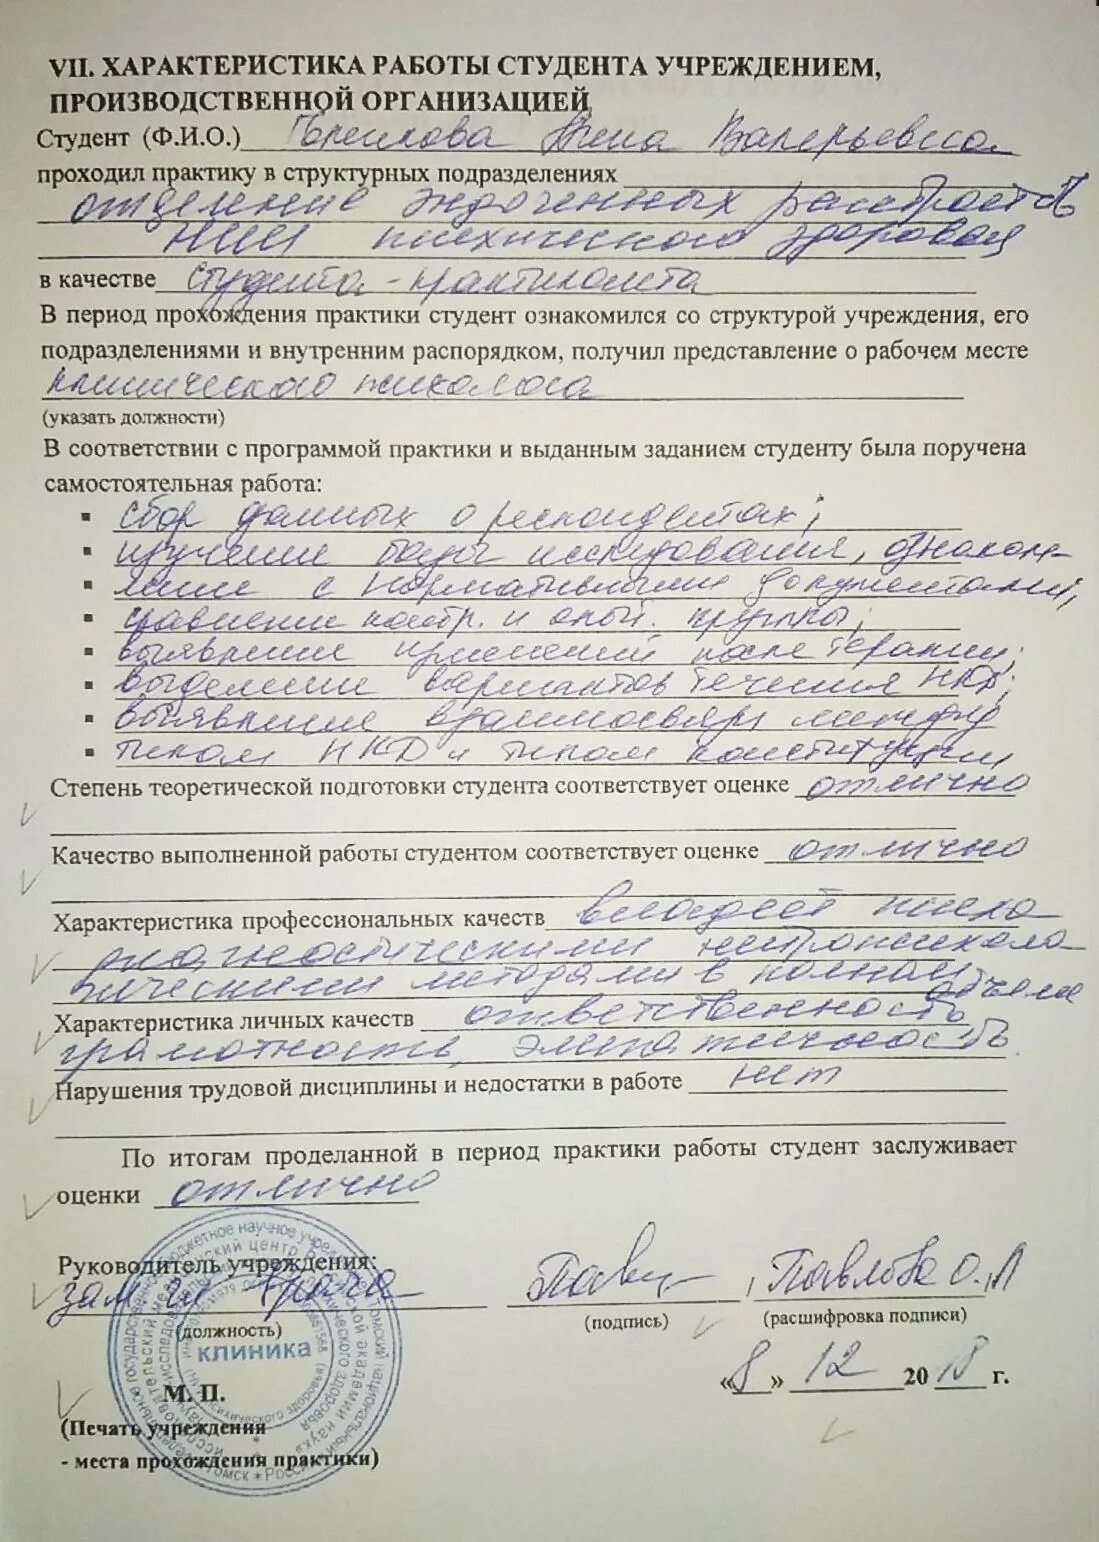 VII. ХАРАКТЕРИСТИКА РАБОТЫ СТУДЕНТА УЧРЕЖДЕНИЕМ,
ПРОИЗВОДСТВЕННОЙ ОРГАНИЗАЦИЕЙ
Студент (Ф.И.О.) Валерьевна
проходил практику в структурных подразделениях
отделение эндогенных расстройств
НИИ психического здоровья
в качестве студента-практиканта
В период прохождения практики студент ознакомился со структурой учреждения, его
подразделениями и внутренним распорядком, получил представление о рабочем месте
клинического психолога
(указать должности)
В соответствии с программой практики и выданным заданием студенту была поручена
самостоятельная работа:
▪ сбор данных о респондентах;
▪ изучение базы исследования, ознаком-
▪ ление с нормативными документами;
▪ сравнение контр. и опыт. группы;
▪ выявление изменений после терапии;
▪ выделение вариантов течения НКД;
▪ выявление взаимосвязи между
▪ типом НКД и типом конституции
Степень теоретической подготовки студента соответствует оценке отлично
Качество выполненной работы студентом соответствует оценке отлично
Характеристика профессиональных качеств владеет психо
диагностическими нейропсихоло
гическими методами в полном объеме
Характеристика личных качеств ответственность
грамотность, эмпатичность
Нарушения трудовой дисциплины и недостатки в работе нет
По итогам проделанной в период практики работы студент заслуживает
оценки отлично
Руководитель учреждения:
зам гл врача , Павлова О.Л
(должность) (подпись) (расшифровка подписи)
КЛИНИКА
«8» 12 2018 г.
М. П.
(Печать учреждения
- места прохождения практики)